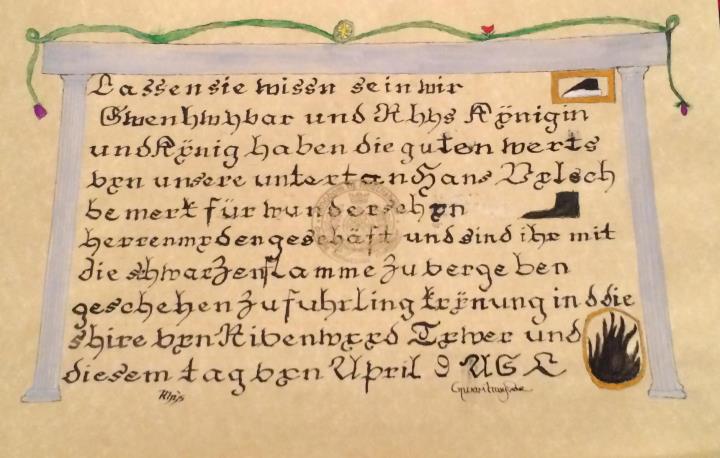 Lassen sie wissn sein wir
Gwenhwybar und Rhys Kynigin
und Kynig haben die guten werts
vxn unsere untertan Hans Vxlsch
bemerk für wunderschxn
herrenmxdengeschäft und sind ihr mit
die schwarzen flamme zu vergeben
geschehen zu fuhrling krxnung in d die
shire vxn Rivenwxxd Txwer und
diesem tag vxn April 9 A S L
Rhys